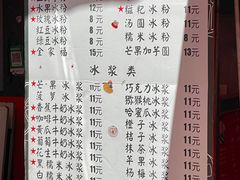 ★芒果冰粉 12元
玫瑰冰粉 8元
红豆冰粉 8元
全家福 15元
★糍粑冰粉
汤圆冰粉 8元
糯米冰粉 8元
芒果加芋圆 13元
冰浆类
★芒果冰浆 11元
菠萝冰浆 11元
★香蕉牛奶冰浆 11元
★咖啡牛奶冰浆 11元
★黄瓜牛奶冰浆 11元
★葡萄牛奶冰浆 11元
★花生牛奶冰浆 11元
黑糯米冰浆 11元
白糯米冰浆
巧克力冰浆 11元
猕猴桃冰浆 11元
哈密瓜冰浆 11元
椰子冰浆 11元
桔子冰浆 11元
抹茶冰浆 11元
苹果冰浆 11元
草莓冰浆 11元
杨梅冰浆